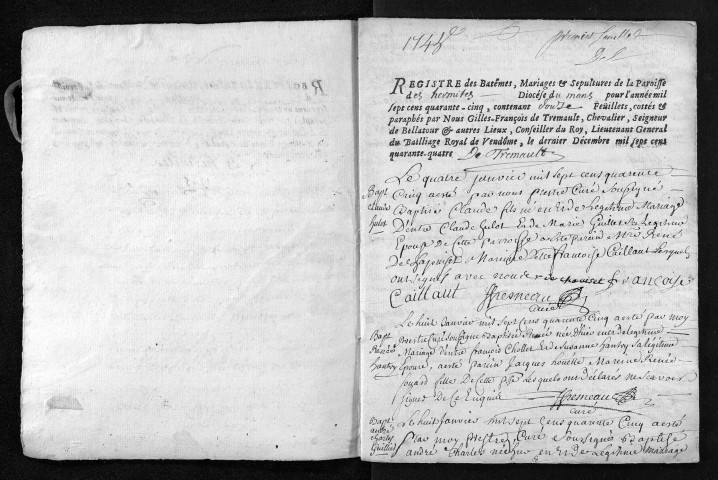 1745
premier feuillet
REGISTRE des Batêmes, Mariages & Sepultures de la Paroisse
des hermites Diocése du mans pour l'année mil
sept cens quarante-cinq, contenant douze Feüillets, cottés &
paraphés par Nous Gilles-François de Tremault, Chevalier, Seigneur
de Bellatour & autres Lieux, Conseiller du Roy, Lieutenant General
du Bailliage Royal de Vendôme, le dernier Décembre mil sept cens
quarante-quatre De Tremault
Le quatre janvier mil sept cens quarente
Bapt
cinq a esté par nous prestre Curé Soussigné
claude
Baptisé Claude fils né en Legitime Mariage
hulot
D'entre Claude hulot Et de Marie sa Legitime
Epouse de Cette parroisse a esté parein René
Mareine françoise Caillaut Lesquels
ont signés avec nous françoise
Caillaut ffresneau
curé
Le huit Janvier mil sept Cens quarente Cinq a esté par moy
Bapt
prestre Curé soussigné Baptisé René né d'hier en Legitime
Mariage d'entre françois Chollet Et de Susanne sa légitime
Epouse, a esté parein Jacques Mareine Renée
fille De Cette psse Lesquels ont déclarés ne scavoir
signer De Ce Enquis ffresneau
curé
Bapt
andré
charles
Le huit Janvier mil sept Cens quarente Cinq a esté
par moy prestre Curé Soussigné Baptisé
andré Charles né hier en Legitime mariage